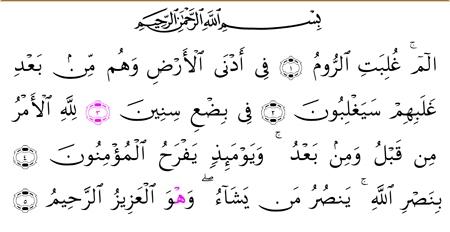 بِسْمِ ٱللَّهِ ٱلرَّحْمَٰنِ ٱلرَّحِيمِ
الٓمٓ ۚ غُلِبَتِ ٱلرُّومُ ١ فِىٓ أَدْنَى ٱلْأَرْضِ وَهُم مِّنۢ بَعْدِ
غَلَبِهِمْ سَيَغْلِبُونَ ٢ فِى بِضْعِ سِنِينَ ٣ لِلَّهِ ٱلْأَمْرُ
مِن قَبْلُ وَمِنۢ بَعْدُ ۚ وَيَوْمَئِذٍ يَفْرَحُ ٱلْمُؤْمِنُونَ ٤
بِنَصْرِ ٱللَّهِ ۚ يَنصُرُ مَن يَشَآءُ ۖ وَهُوَ ٱلْعَزِيزُ ٱلرَّحِيمُ ٥